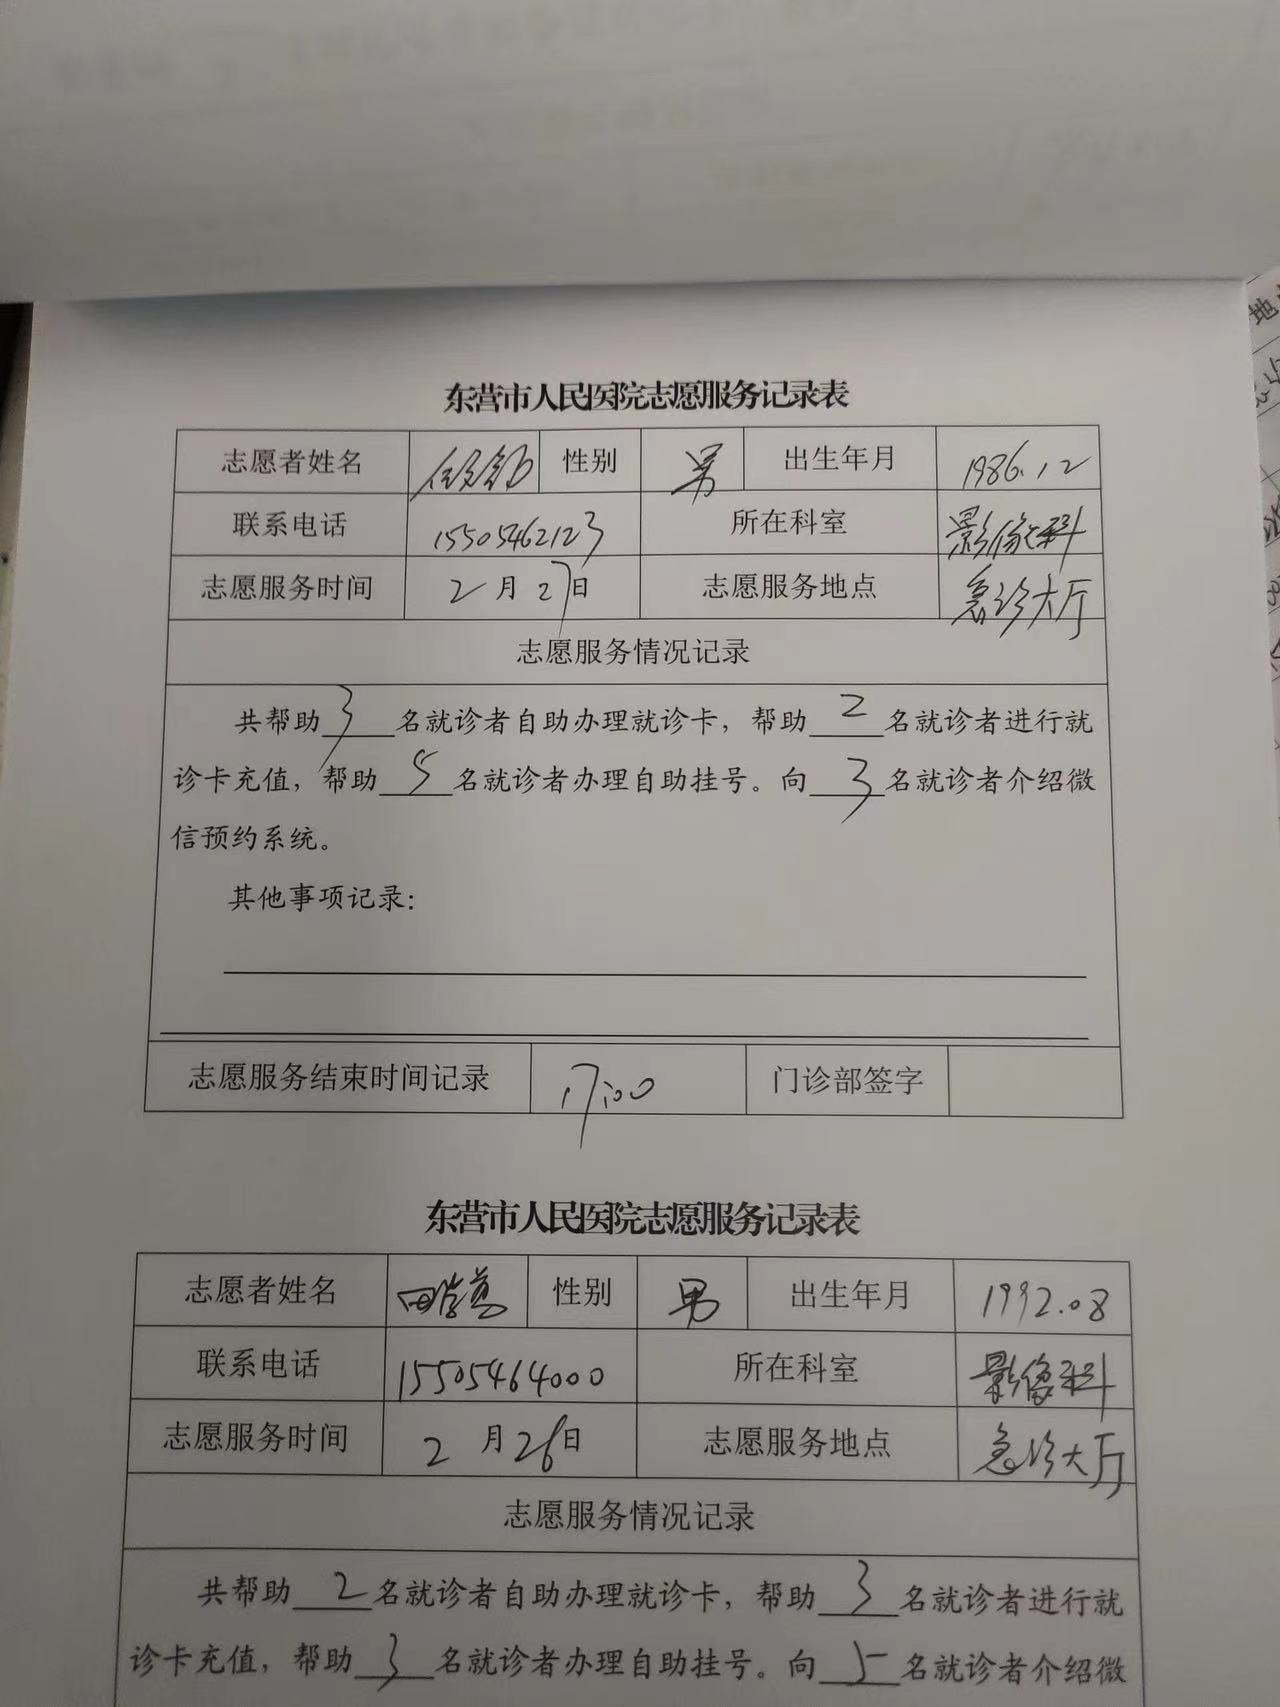 东营市人民医院志愿服务记录表
志愿者姓名 性别 男 出生年月 1986.12
联系电话 15505462123 所在科室 影像科
志愿服务时间 2月27日 志愿服务地点 急诊大厅
志愿服务情况记录
共帮助3名就诊者自助办理就诊卡，帮助2名就诊者进行就
诊卡充值，帮助5名就诊者办理自助挂号。向3名就诊者介绍微
信预约系统。
其他事项记录：
志愿服务结束时间记录 17:00 门诊部签字
东营市人民医院志愿服务记录表
志愿者姓名 性别 男 出生年月 1992.08
联系电话 15505464000 所在科室 影像科
志愿服务时间 2月26日 志愿服务地点 急诊大厅
志愿服务情况记录
共帮助2名就诊者自助办理就诊卡，帮助3名就诊者进行就
诊卡充值，帮助3名就诊者办理自助挂号。向5名就诊者介绍微